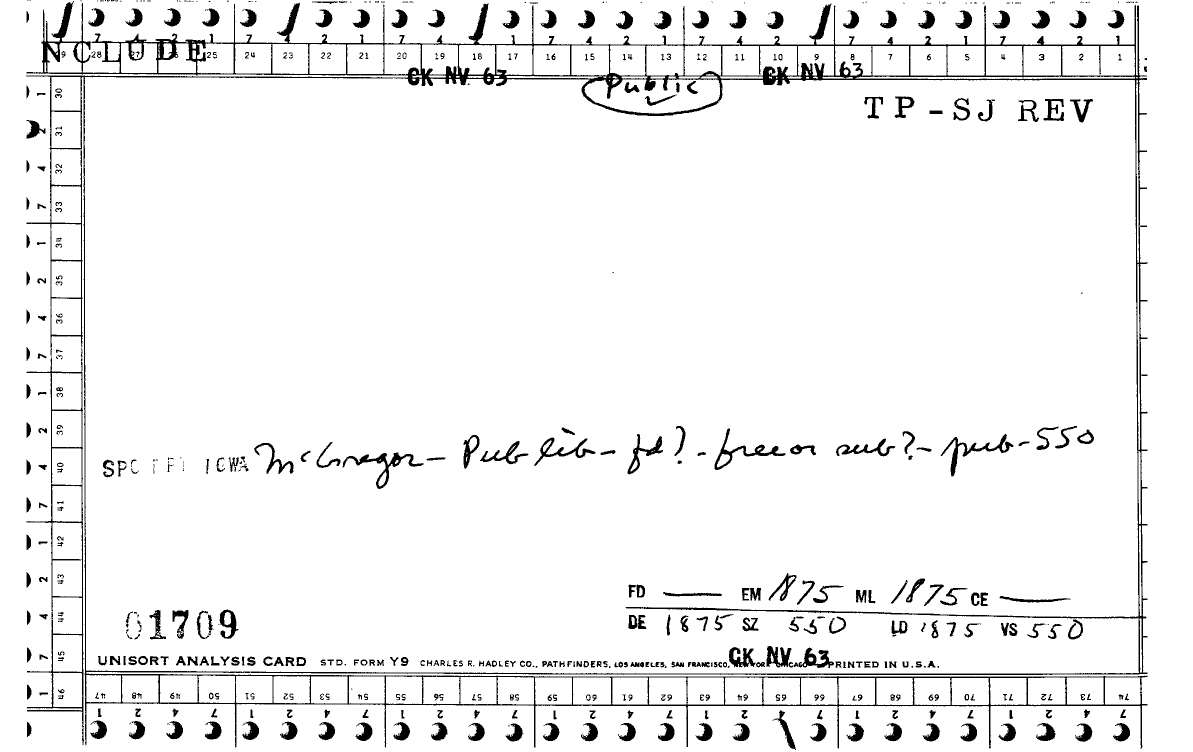 7 4 2 1 7 4 2 1 7 4 2 1 7 4 2 1 7 4 2 1 7 4 2 1 7 4 2 1
NCLUDE
29 28 27 26 25 24 23 22 21 20 19 18 17 16 15 14 13 12 11 10 9 8 7 6 5 4 3 2 1
CK NV 63 Public CK NV 63
TP-SJ REV
1 30
2 31
4 32
7 33
1 34
2 35
4 36
7 37
1 38
2 39
4 40
7 41
1 42
2 43
4 44
7 45
1 46
IOWA McGregor - Pub lib - fd? - free or sub? - pub - 550
FD — EM 1875 ML 1875 CE —
DE 1875 SZ 550 LD 1875 VS 550
01709
UNISORT ANALYSIS CARD STD. FORM Y9 CHARLES R. HADLEY CO., PATHFINDERS, LOS ANGELES, SAN FRANCISCO, NEW YORK CHICAGO PRINTED IN U.S.A.
CK NV 63
47 48 49 50 51 52 53 54 55 56 57 58 59 60 61 62 63 64 65 66 67 68 69 70 71 72 73 74
1 2 4 7 1 2 4 7 1 2 4 7 1 2 4 7 1 2 4 7 1 2 4 7 1 2 4 7